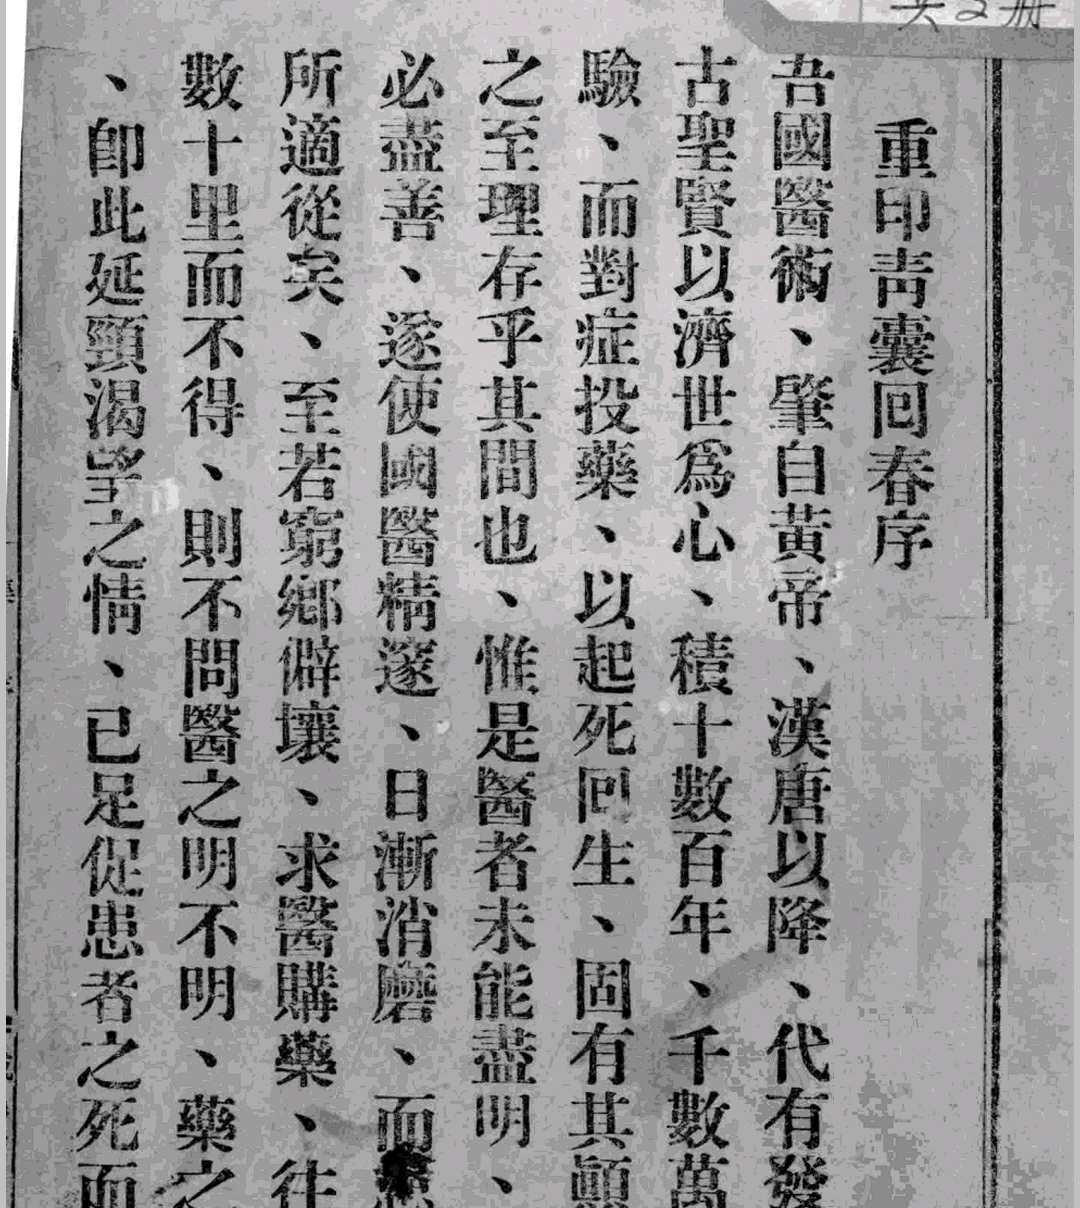 共2册
重印青囊回春序
吾國醫術、肇自黃帝、漢唐以降、代有發
古聖賢以濟世爲心、積十數百年、千數萬
驗、而對症投藥、以起死回生、固有其顚
之至理存乎其間也、惟是醫者未能盡明、
必盡善、遂使國醫精邃、日漸消磨、而
所適從矣、至若窮鄉僻壤、求醫購藥、往
數十里而不得、則不問醫之明不明、藥之
、卽此延頸渴望之情、已足促患者之死而